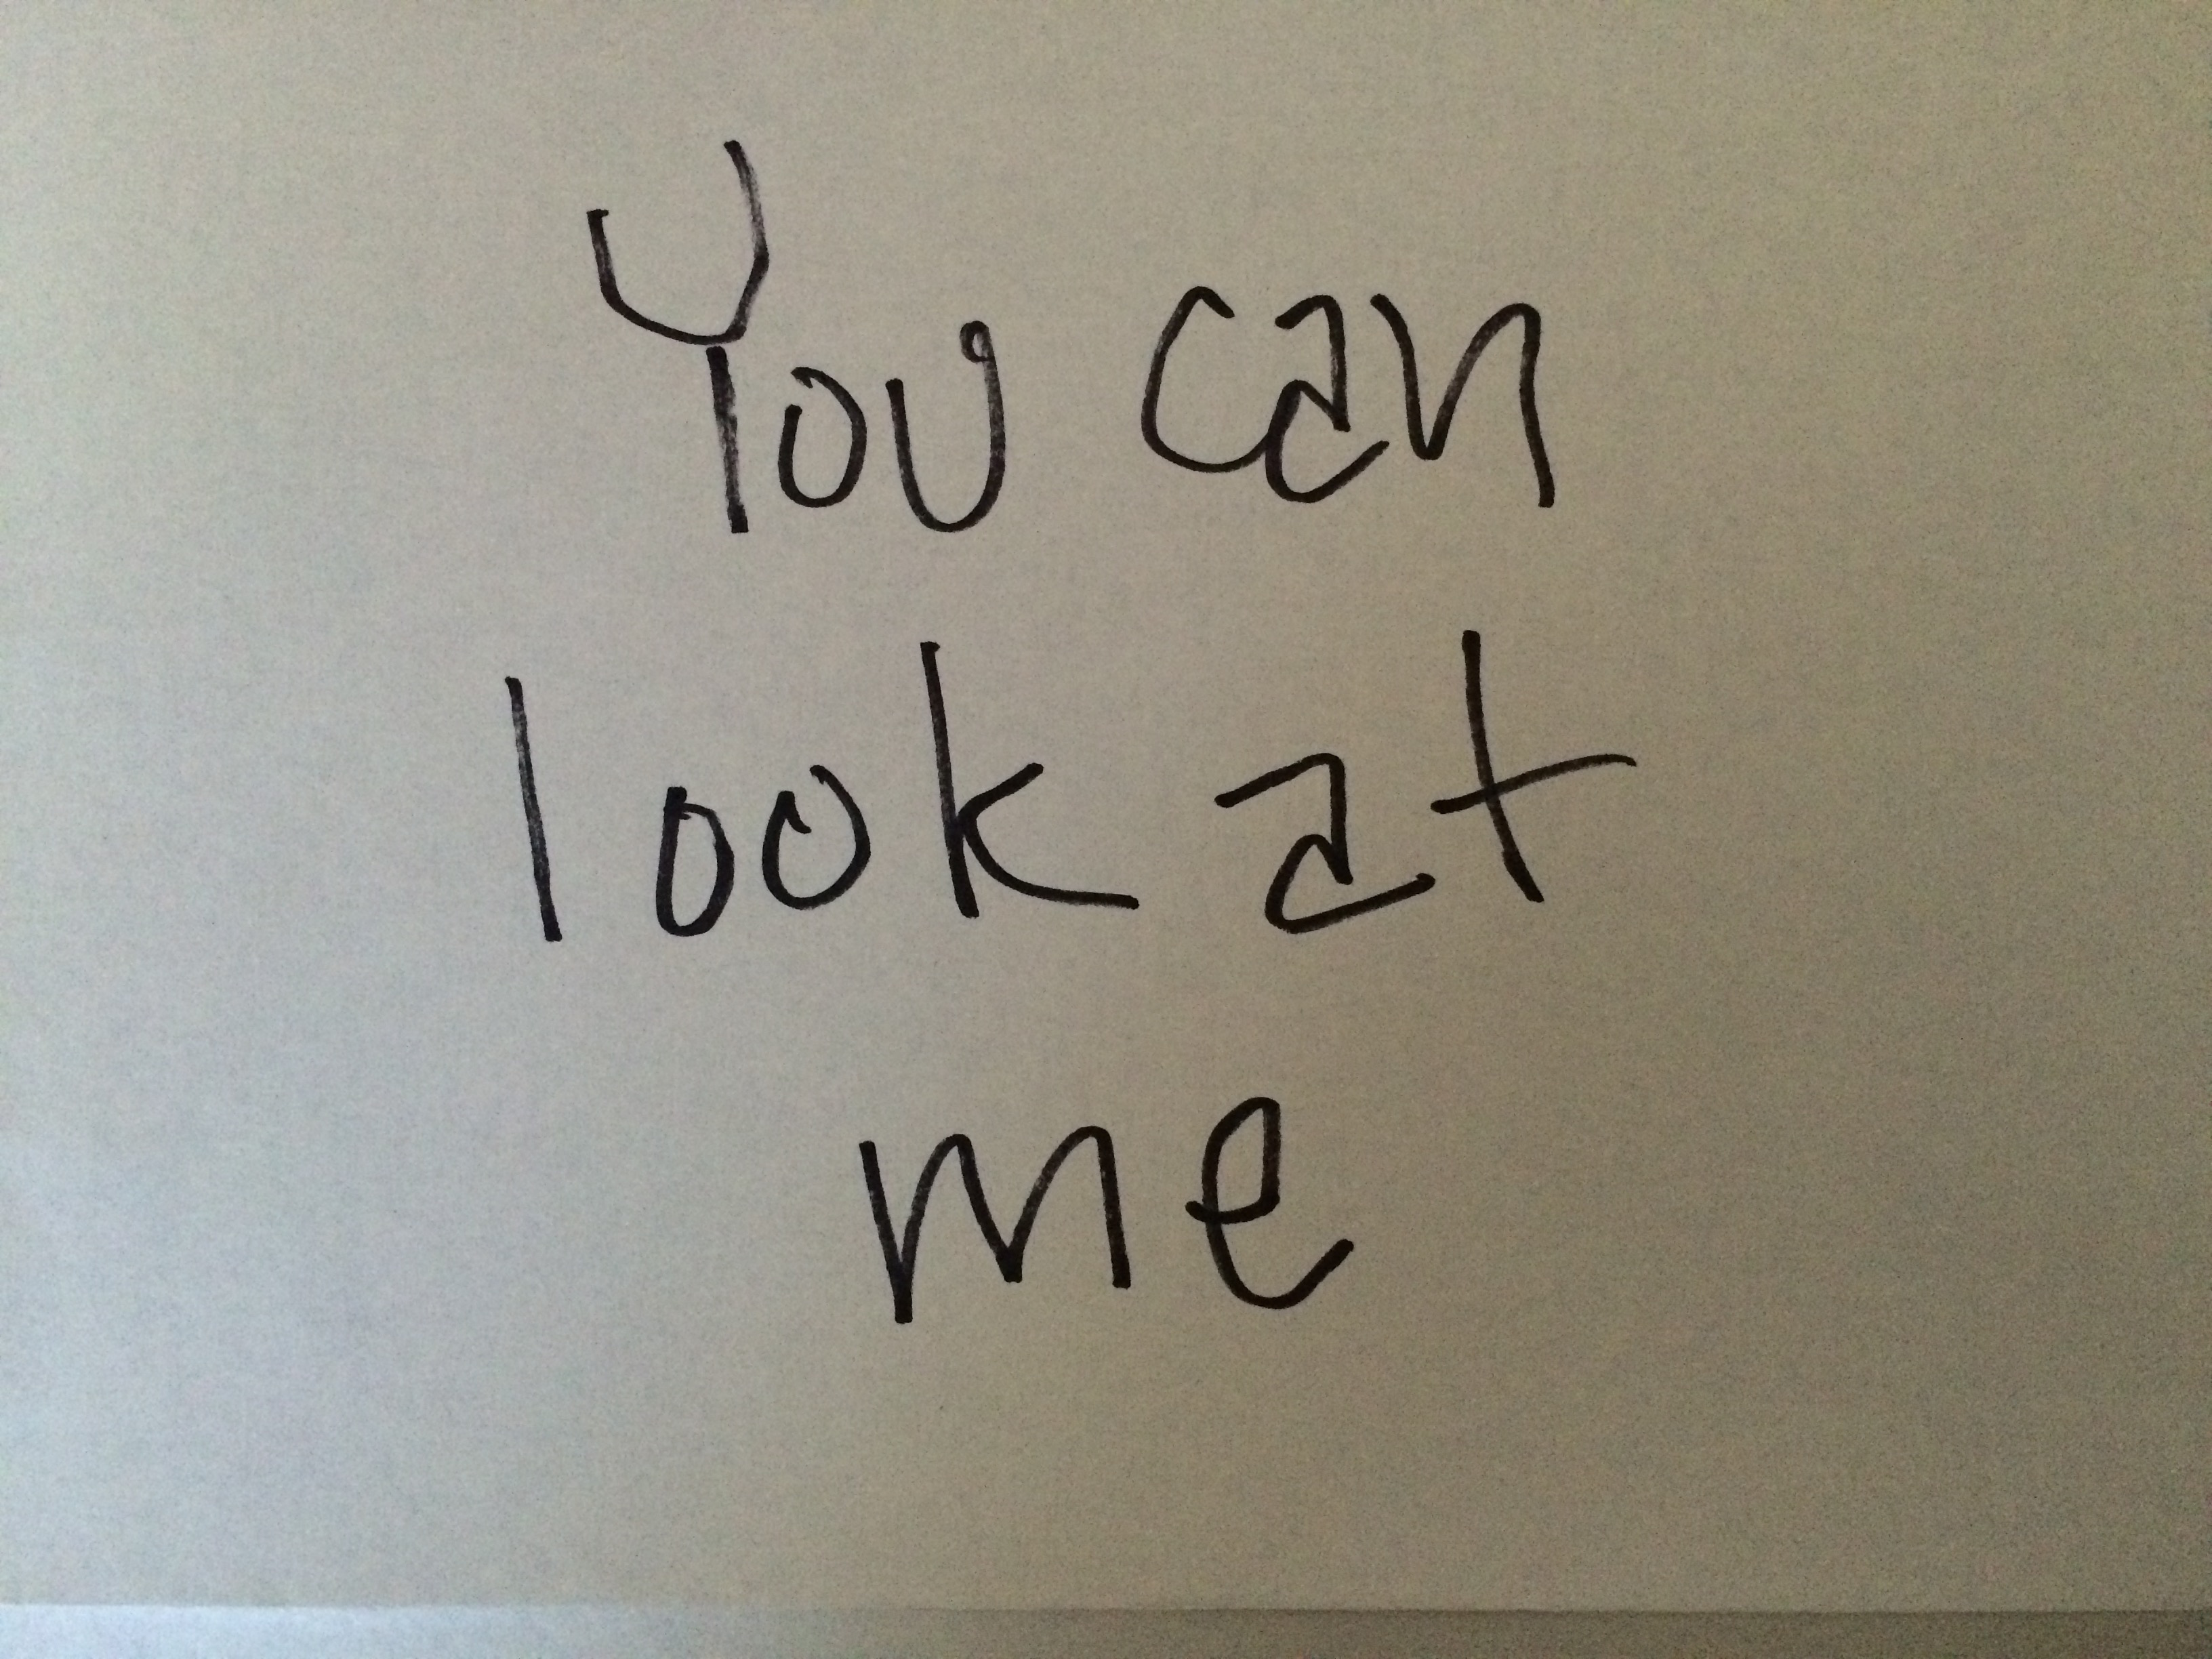 You can
look at
me